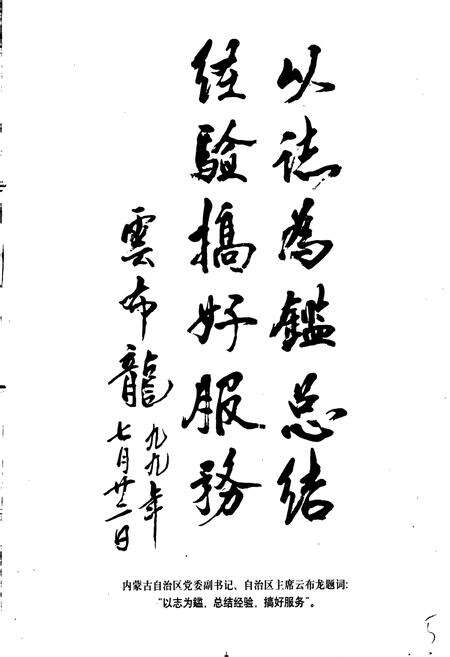 以誌為鑑总结
经验搞好服務
雲布龍
九九年
七月廿二日
内蒙古自治区党委副书记、自治区主席云布龙题词:
“以志为鑑，总结经验，搞好服务”。
5